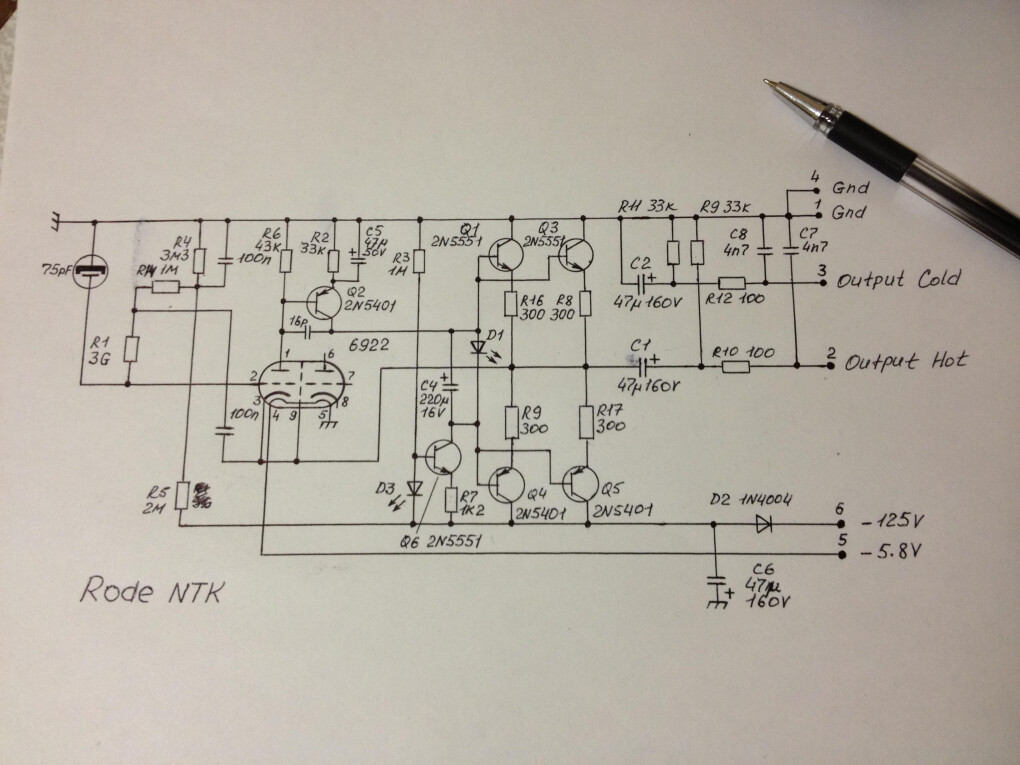 4 Gnd
1 Gnd
R11 33K
R9 33K
C8
4n7
C7
4n7
3 Output Cold
C2
+
47µ 160V
R12 100
2 Output Hot
C1
+
47µ 160V
R10 100
Q1
2N5551
Q3
2N5551
R16
300
R8
300
R9
300
R17
300
Q4
2N5401
Q5
2N5401
D1
R6
43K
R2
33K
C5
47µ
+
R3
1M
Q2
2N5401
16p
6922
R4
3M3
100n
1M
75pF
R1
3G
1
6
2
7
3
4
9
5
8
100n
C4
+
220µ
16V
D3
R7
1K2
Q6 2N5551
R5
2M
D2 1N4004
6
-125V
5
-5.8V
C6
47µ
+
160V
Rode NTK